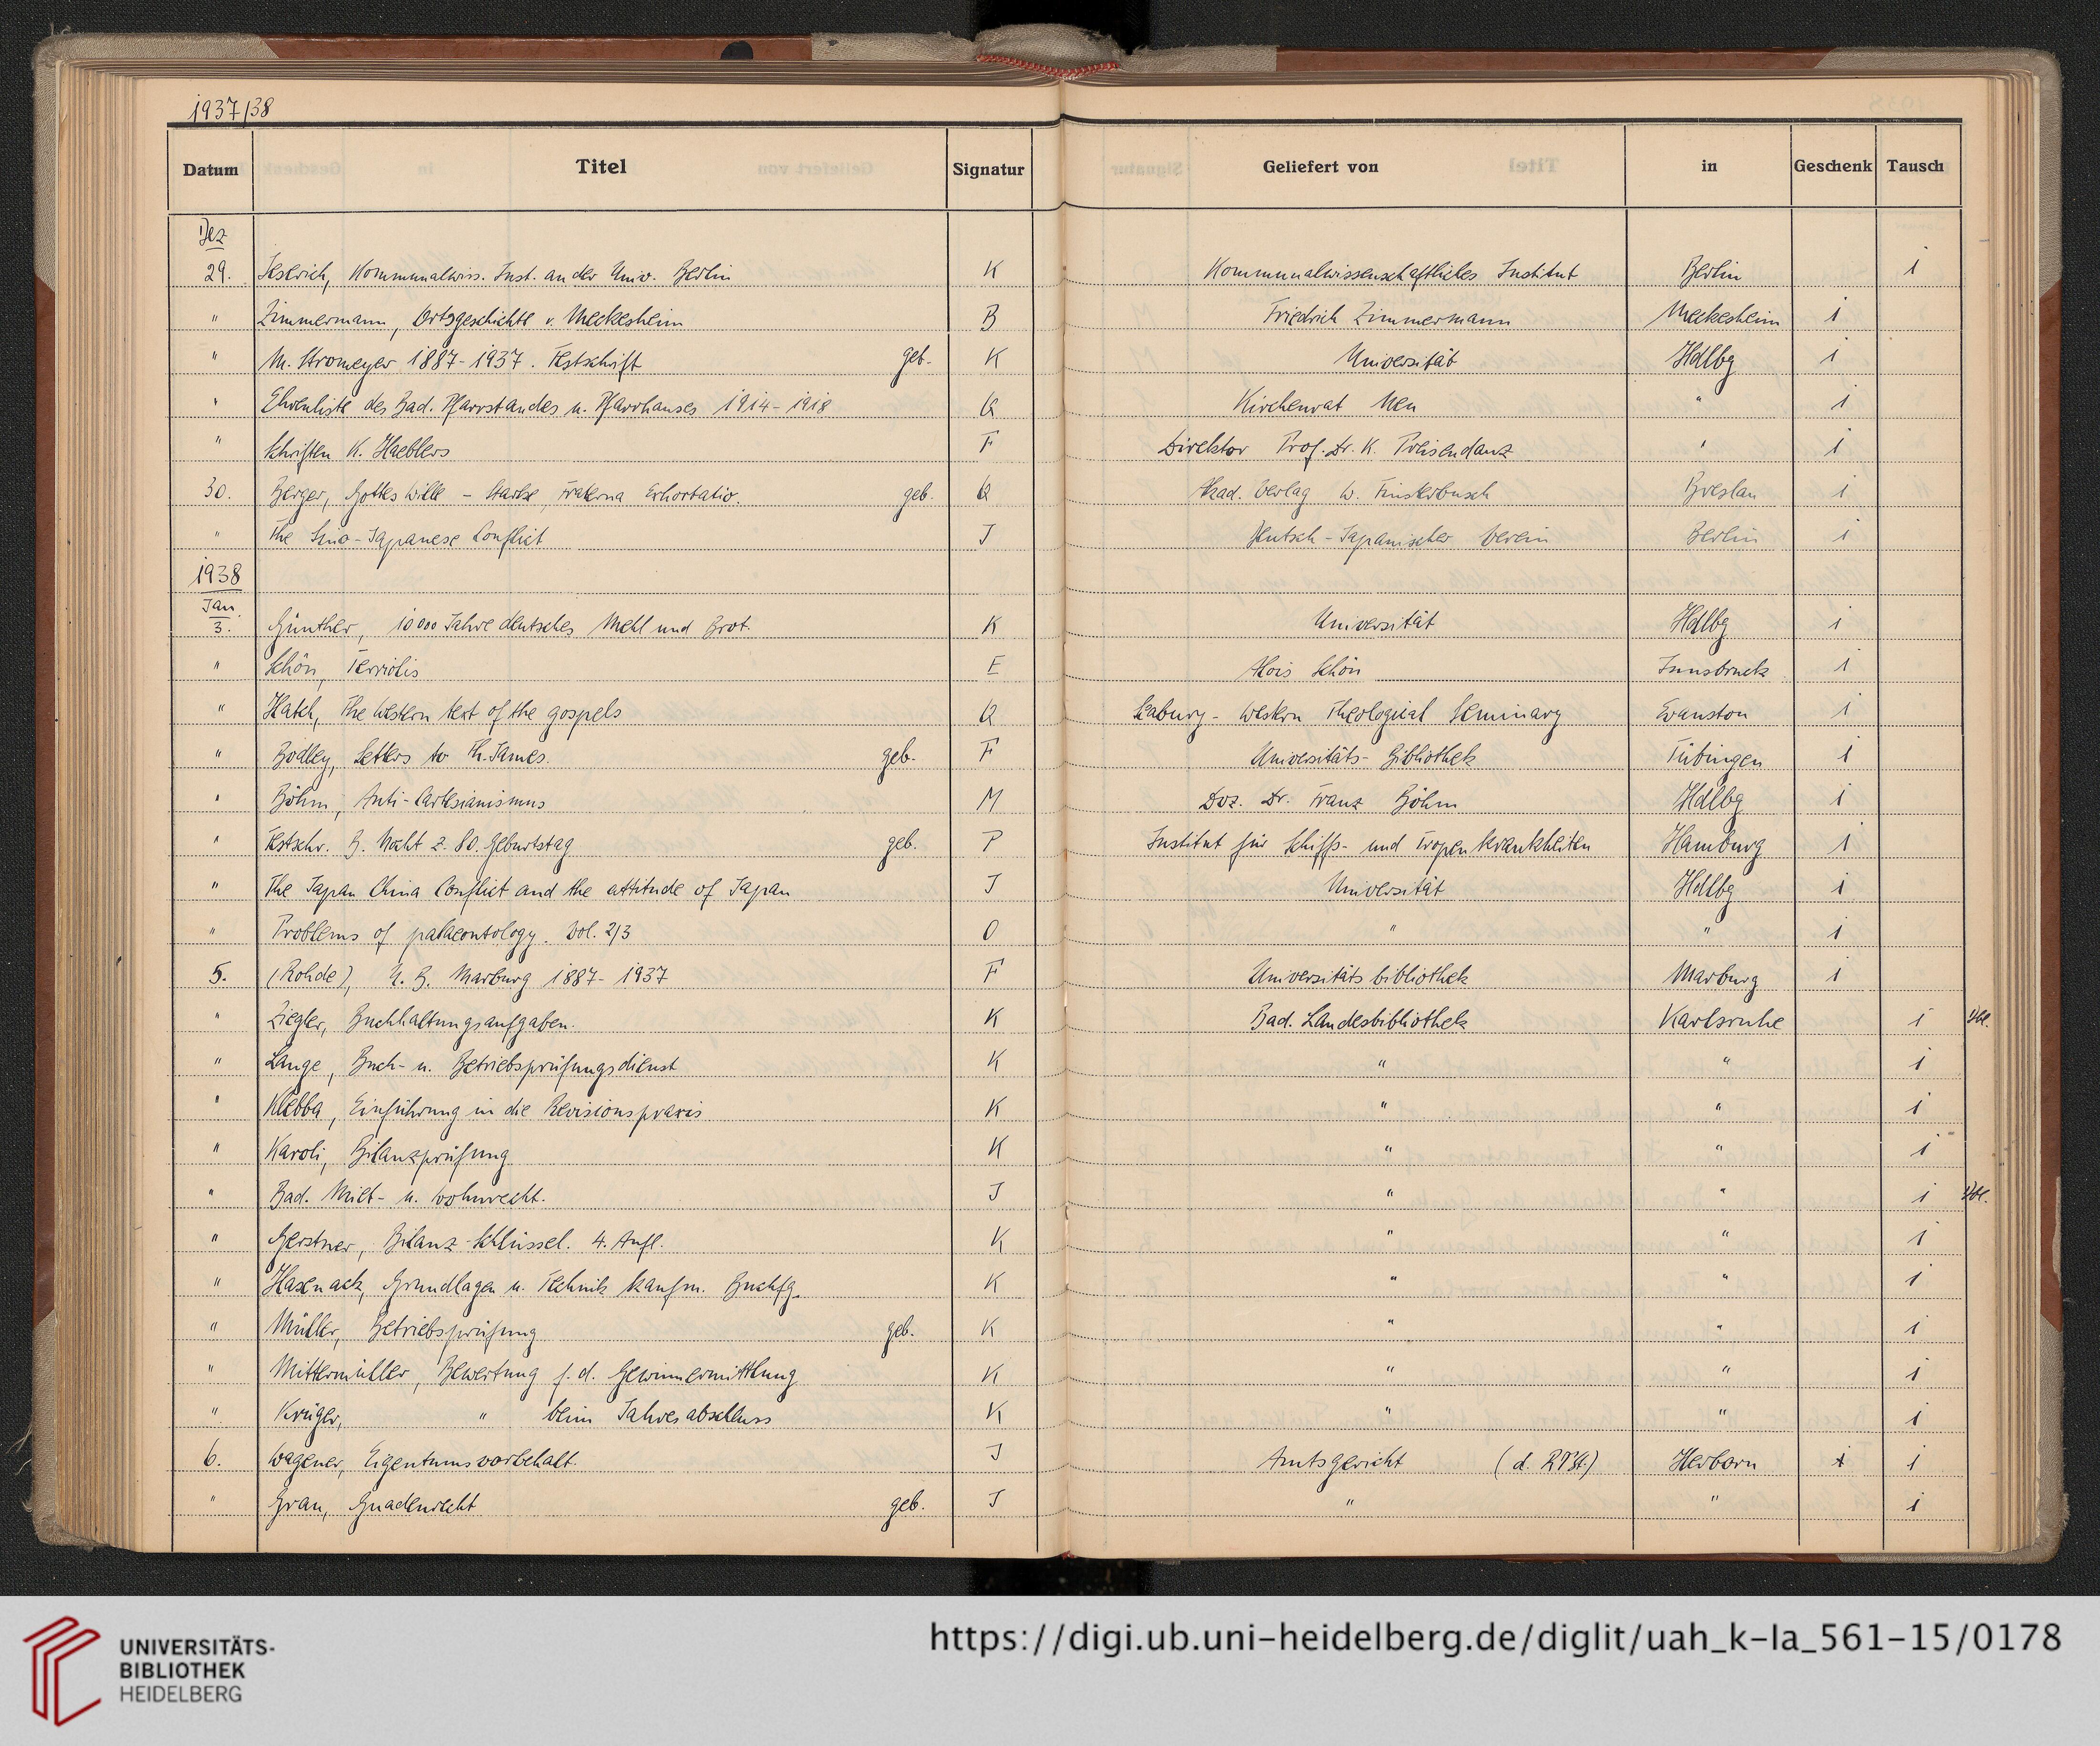 1937/38
Datum Titel Signatur Geliefert von in Geschenk Tausch
Dez
29. Jeserich, Kommunalwiss. Inst. an der Univ. Berlin K Kommunalwissenschaftliches Institut Berlin 1
" Zimmermann, Ortsgeschichte v. Meckesheim B Friedrich Zimmermann Meckesheim 1
" M. Stromeyer 1887-1937. Festschrift geb. K Universität Hdlbg 1
" Ehrenliste des Bad. Pfarrstandes u. Pfarrhauses 1914-1918 Q Kirchenrat Neu " 1
" Schriften K. Haeblers F Direktor Prof. Dr. K. Preisendanz " 1
30. Berger, Gottes Wille - Starke, Fraterna Exhortatio. geb. Q Akad. Verlag W. Finsterbusch Breslau 1
" The Sino-Japanese Conflict J Deutsch-Japanischer Verein Berlin 1
1938
Jan.
3. Günther, 10000 Jahre deutsches Mehl und Brot. K Universität Hdlbg 1
" Schön, Terriolis E Alois Schön Innsbruck 1
" Hatch, The western text of the gospels Q Seabury-Western Theological Seminary Evanston 1
" Bodley, Letters to Th. James. geb. F Universitäts-Bibliothek Tübingen 1
" Böhm, Anti-Cartesianismus M Doz. Dr. Franz Böhm Hdlbg 1
" Festschr. B. Nocht z. 80. Geburtstag geb. P Institut für Schiffs- und Tropenkrankheiten Hamburg 1
" The Japan China Conflict and the attitude of Japan J Universität Hdlbg 1
" Problems of palaeontology. Vol. 2/3 O " " 1
5. (Rohde), U. B. Marburg 1887-1937 F Universitätsbibliothek Marburg 1
" Ziegler, Buchhaltungsaufgaben. K Bad. Landesbibliothek Karlsruhe 1
" Lange, Buch- u. Betriebsprüfungsdienst K " " 1
" Klebba, Einführung in die Revisionspraxis K " " 1
" Karoli, Bilanzprüfung K " " 1
" Bad. Miet- u. Wohnrecht. J " " 1
" Gerstner, Bilanz-Schlüssel. 4. Aufl. K " " 1
" Hasenack, Grundlagen u. Technik kaufm. Buchfg. K " " 1
" Müller, Betriebsprüfung geb. K " " 1
" Mittermüller, Bewertung f. d. Gewinnermittlung K " " 1
" Krüger, " beim Jahresabschluss K " " 1
6. Wagener, Eigentumsvorbehalt. J Amtsgericht (d. RTSt.) Herborn 1 1
" Grau, Gnadenrecht geb. J " " 1
UNIVERSITÄTS-
BIBLIOTHEK
HEIDELBERG
https://digi.ub.uni-heidelberg.de/diglit/uah_k-Ia_561-15/0178